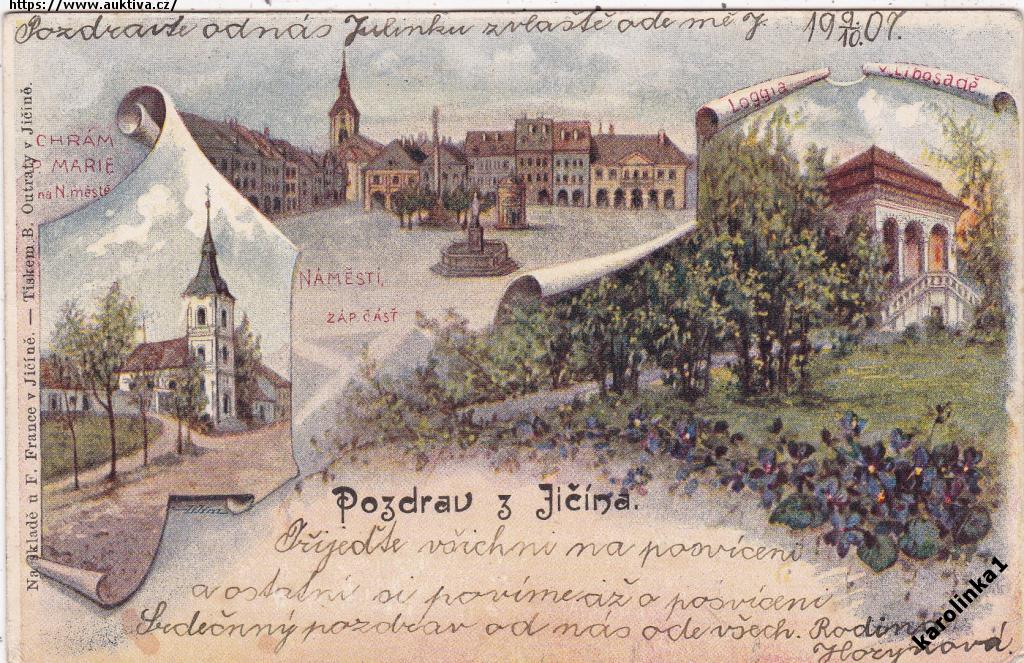 https://www.auktiva.cz/
Pozdravte od nás Julinku zvlaště ode mě J 19 9/10. 07.
Na skladě u F. France v Jičíně. — Tiskem B. Outraty v Jičíně.
CHRÁM
MARIE
na N. městě
NÁMĚSTÍ,
ZÁP. ČÁSŤ
Loggia
v Libosadě.
Pozdrav z Jičína.
Přijeďte všichni na posvícení
a ostatní si povíme až o posvícení
Srdečnný pozdrav od nás ode všech. Rodina
karolinka1